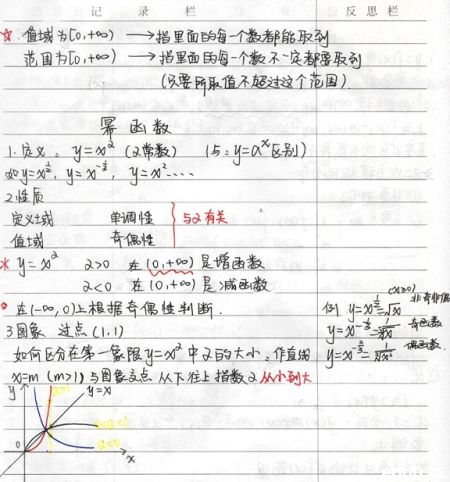 记录栏 反思栏
☆ 值域为[0,+∞) → 指里面的每一个数都能取到
范围为[0,+∞) → 指里面的每一个数不一定都要取到
(只要所取值不超过这个范围)
幂函数
1.定义: y=x^α (α常数) (与:y=a^x区别)
如y=x^½, y=x^-⅓, y=x²....
2.性质
定义域 单调性
值域 奇偶性
} 与α有关
* y=x^α α>0 在(0,+∞)是增函数
α<0 在(0,+∞)是减函数
在(-∞,0)上根据奇偶性判断.
例 y=x^½=√x (x≥0) 非奇非偶
y=x^-⅓=1/∛x 奇函数
y=x^-⅔=1/∛x² 偶函数
3.图象 过点(1,1)
如何区分在第一象限y=x^α中α的大小:作直线
x=m (m>1)与图象交点 从下往上指数α从小到大
y α>1 y=x
0<α<1
α<0
0 x